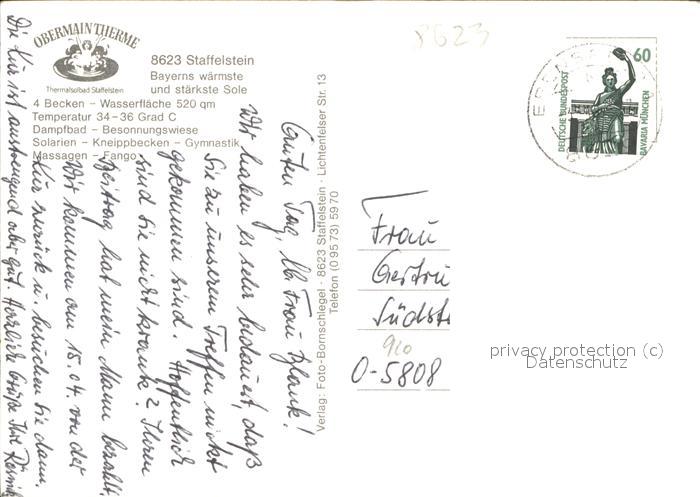 OBERMAIN THERME
Thermalsolbad Staffelstein
8623 Staffelstein
Bayerns wärmste
und stärkste Sole
4 Becken – Wasserfläche 520 qm
Temperatur 34–36 Grad C
Dampfbad – Besonnungswiese
Solarien – Kneippbecken – Gymnastik
Massagen – Fango
Guten Tag, lb. Frau
Wir haben es sehr bedauert, daß
Sie zu unserem Treffen nicht
gekommen sind. Hoffentlich
sind Sie nicht krank? Ihren
Beitrag hat mein Mann bezahlt.
Wir kommen am 15.04. von der
Kur zurück u. besuchen Sie dann.
Die Kur ist anstrengend aber gut. Herzliche Grüße Ihre
Verlag: Foto-Bornschlegel · 8623 Staffelstein · Lichtenfelser Str. 13
Telefon (0 95 73) 59 70
8623
60
DEUTSCHE BUNDESPOST
BAVARIA MÜNCHEN
Frau
Gertru
Südst
910
O-5808
privacy protection (c)
Datenschutz